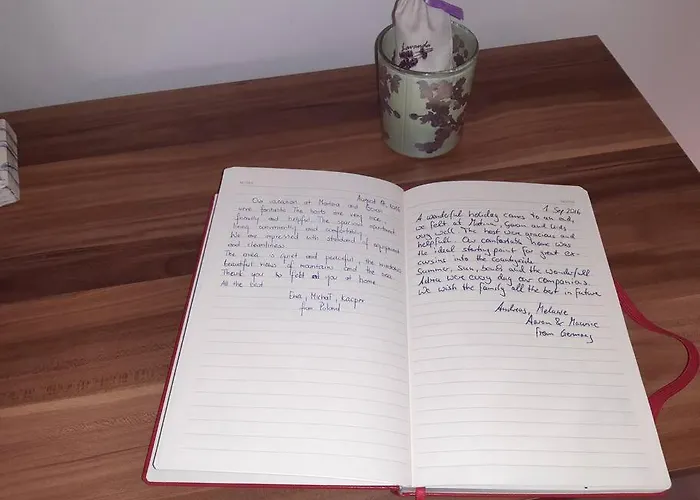 Lavanda
August
Our vacation at Martina and Goran
were fantastic. The hosts are very nice,
friendly and helpful. The spacious apartment
living conveniently and comfortably.
We are impressed with standard of equipment
and cleanliness.
The area is quiet and peaceful, the
beautiful views of mountains and the sea.
Thank you to feld at you at home.
All the best
Ewa, Michał, Kacper
from Poland
1. Sep 2016
A wonderful holiday comes to an end,
we felt at Martina, Goran and kids
very well. The host were gracious and
helpfull. Our comfortable home was
the ideal starting point for great ex-
cursions into the countryside.
Summer, sun, books and the wonderfull
Adria were every day our companions.
We wish the family all the best in future
Andreas, Melanie
Aaron & Maurice
from Germany